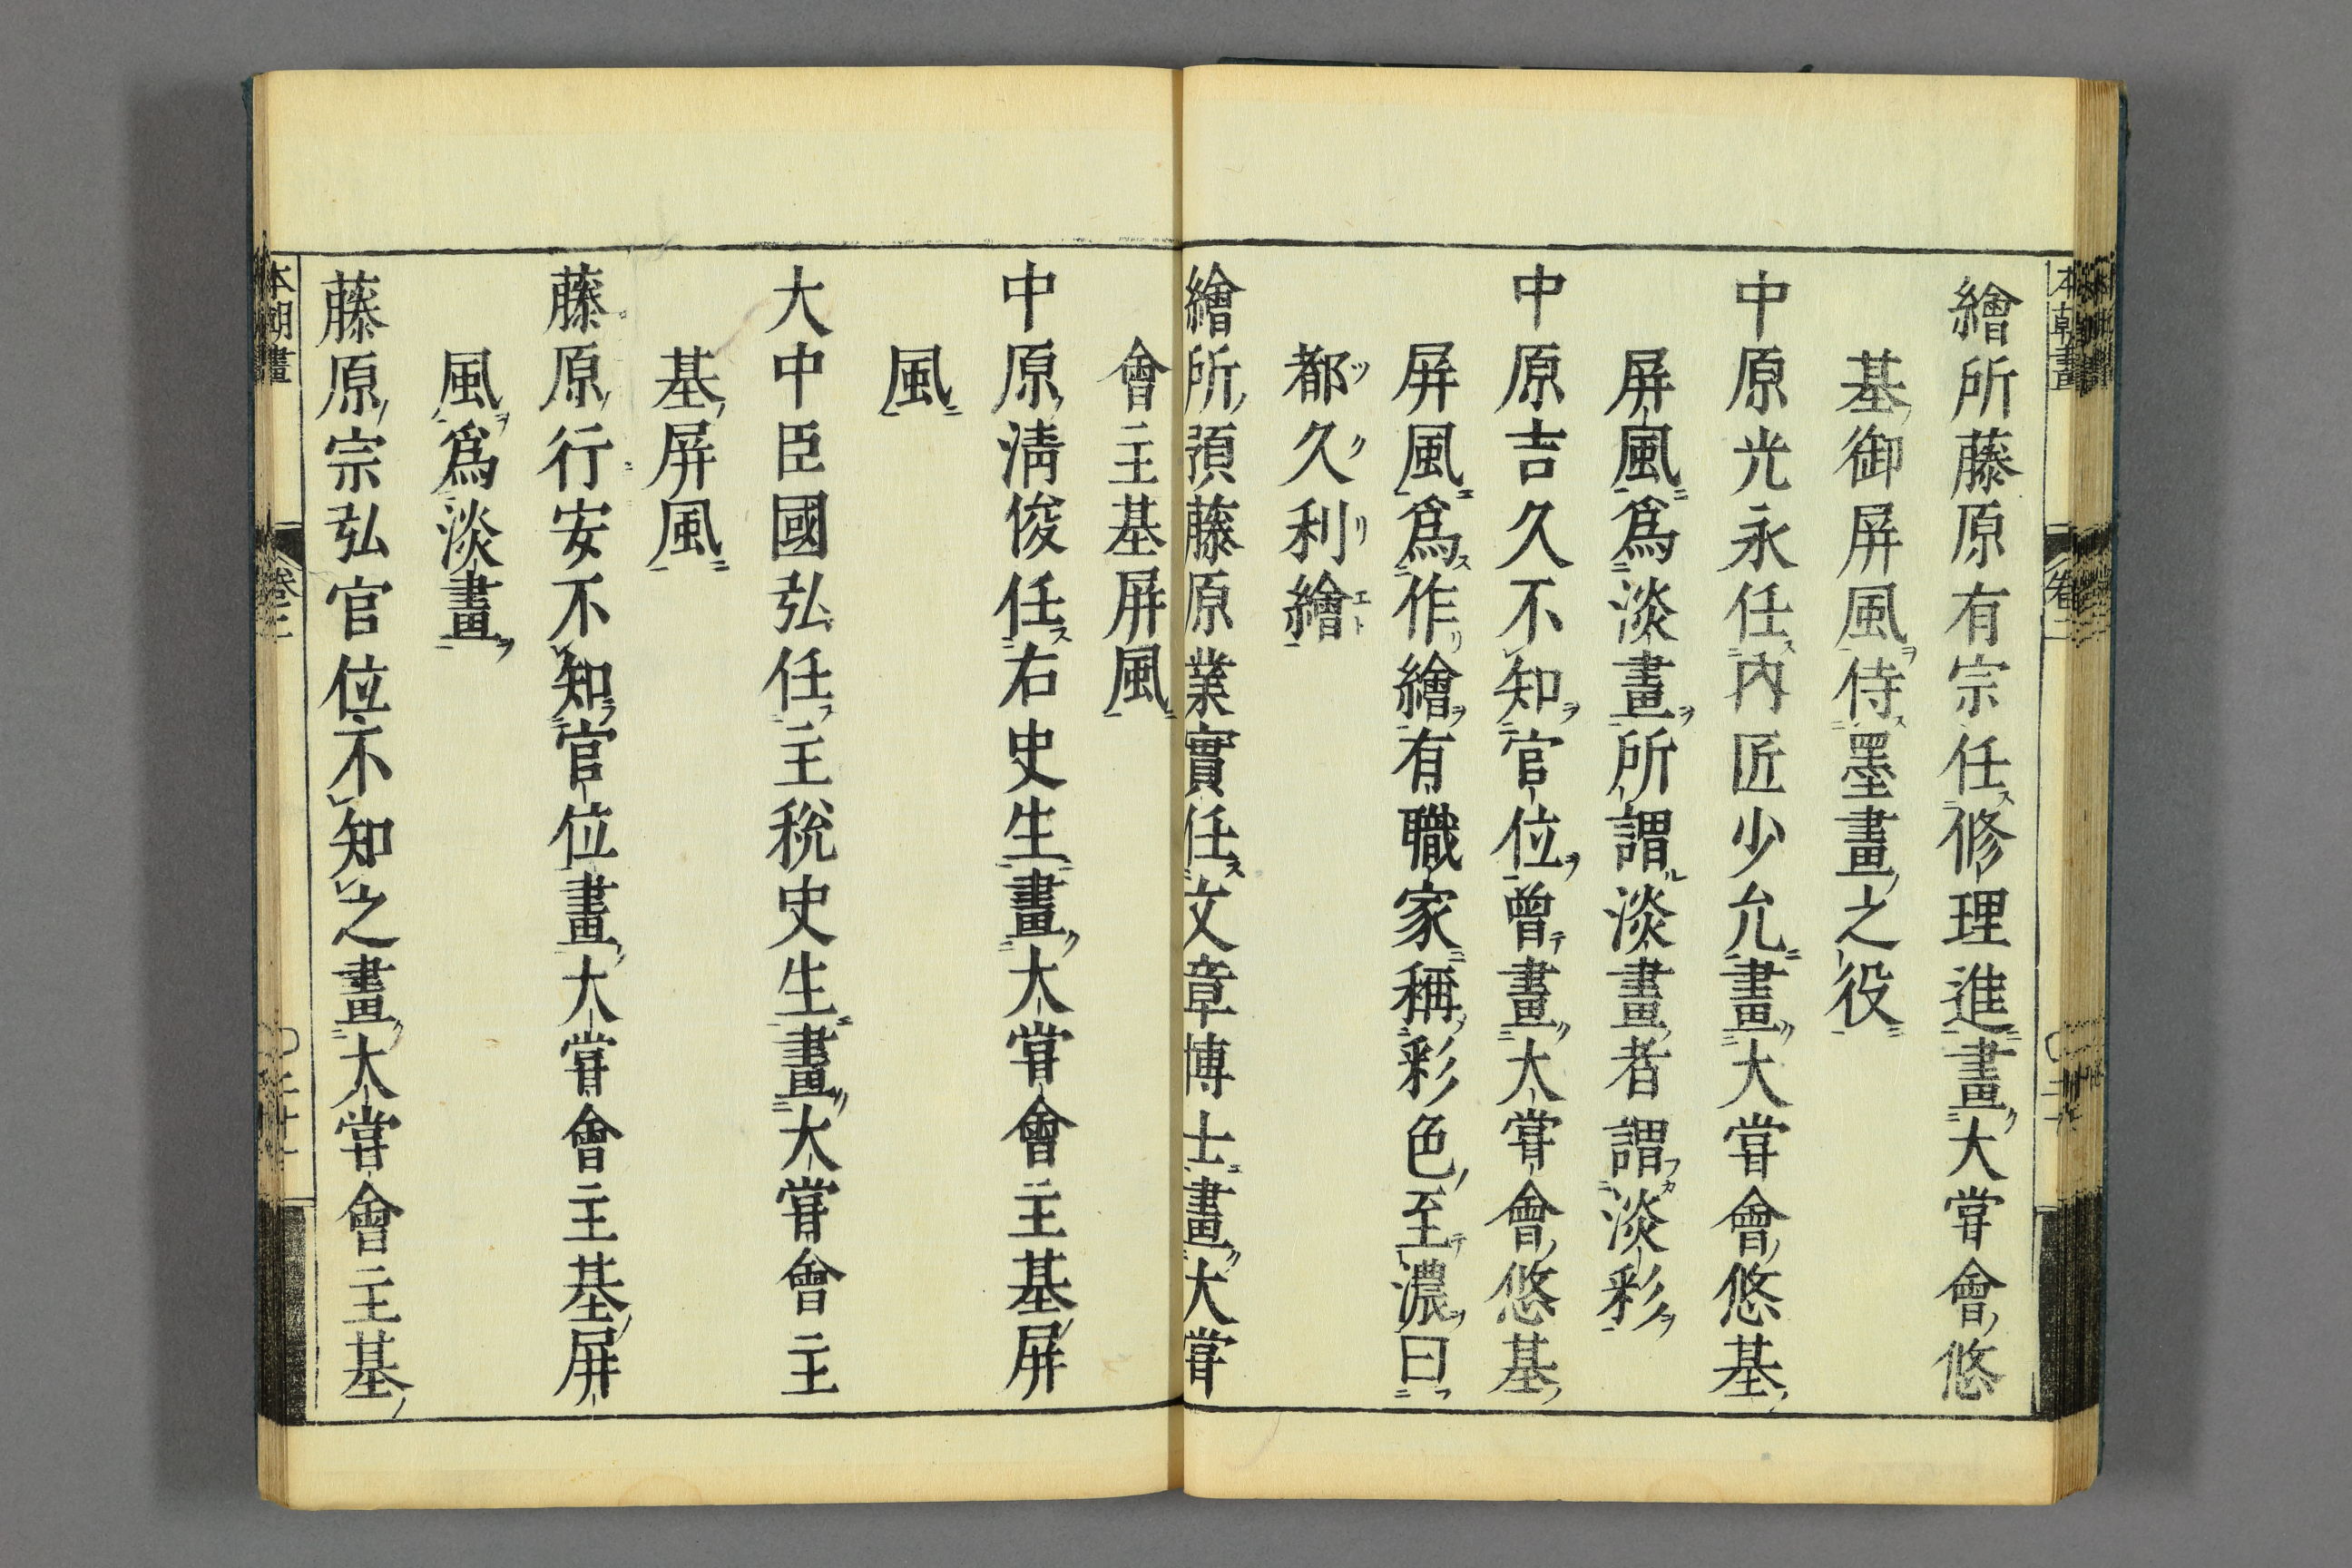 繪所藤原有宗任修理進畫大甞會悠
基御屏風侍墨畫之役
中原光永任内匠少允畫大甞會悠基
屏風爲淡畫所謂淡畫者謂淡彩
中原吉久不知官位曽畫大甞會悠基
屏風爲作繪有職家稱彩色至濃曰
都久利繪
繪所預藤原業實任文章博士畫大甞
會主基屏風
中原淸俊任右史生畫大甞會主基屏
風
大中臣國弘任主稅史生畫大甞會主
基屏風
藤原行安不知官位畫大甞會主基屏
風爲淡畫
藤原宗弘官位不知之畫大甞會主基
本朝畫
卷二